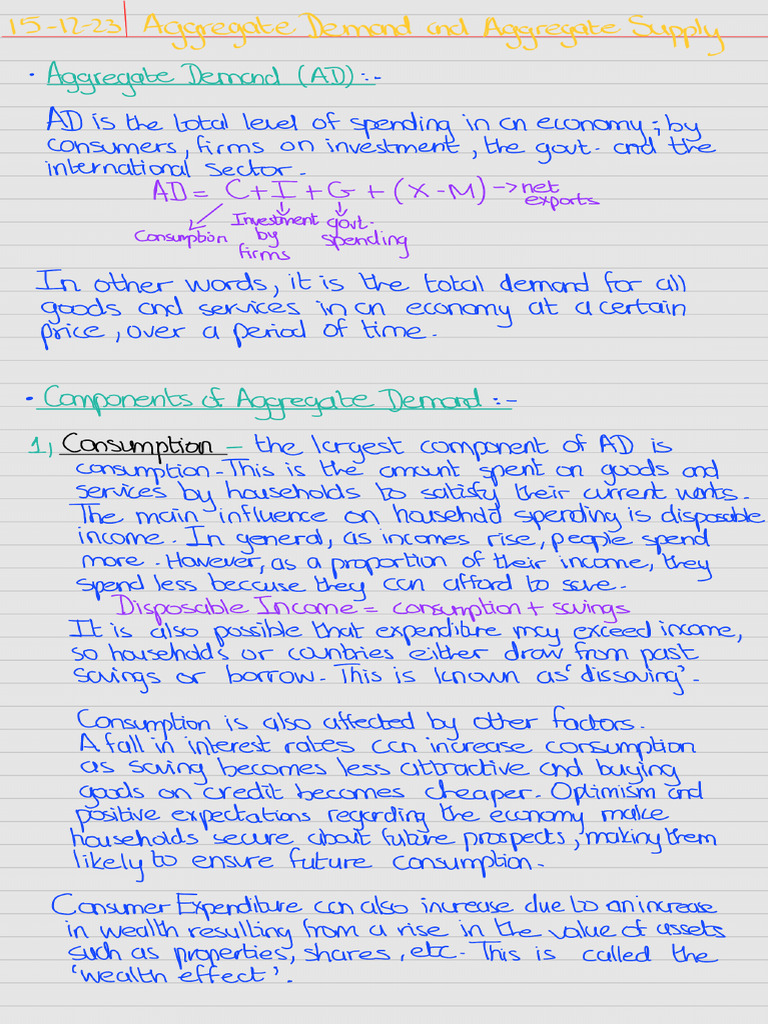 15-12-23 Aggregate Demand and Aggregate Supply
· Aggregate Demand (AD):-
AD is the total level of spending in an economy; by
consumers, firms on investment, the govt. and the
international sector.
AD = C+I+G+(X-M) → net exports
Consumption
Investment by firms
govt. spending
In other words, it is the total demand for all
goods and services in an economy at a certain
price, over a period of time.
· Components of Aggregate Demand :-
1, Consumption – the largest component of AD is
consumption. This is the amount spent on goods and
services by households to satisfy their current wants.
The main influence on household spending is disposable
income. In general, as incomes rise, people spend
more. However, as a proportion of their income, they
spend less because they can afford to save.
Disposable Income = consumption + savings
It is also possible that expenditure may exceed income,
so households or countries either draw from past
savings or borrow. This is known as 'dissaving'.
Consumption is also affected by other factors.
A fall in interest rates can increase consumption
as saving becomes less attractive and buying
goods on credit becomes cheaper. Optimism and
positive expectations regarding the economy make
households secure about future prospects, making them
likely to ensure future consumption.
Consumer Expenditure can also increase due to an increase
in wealth resulting from a rise in the value of assets
such as properties, shares, etc. This is called the
'wealth effect'.